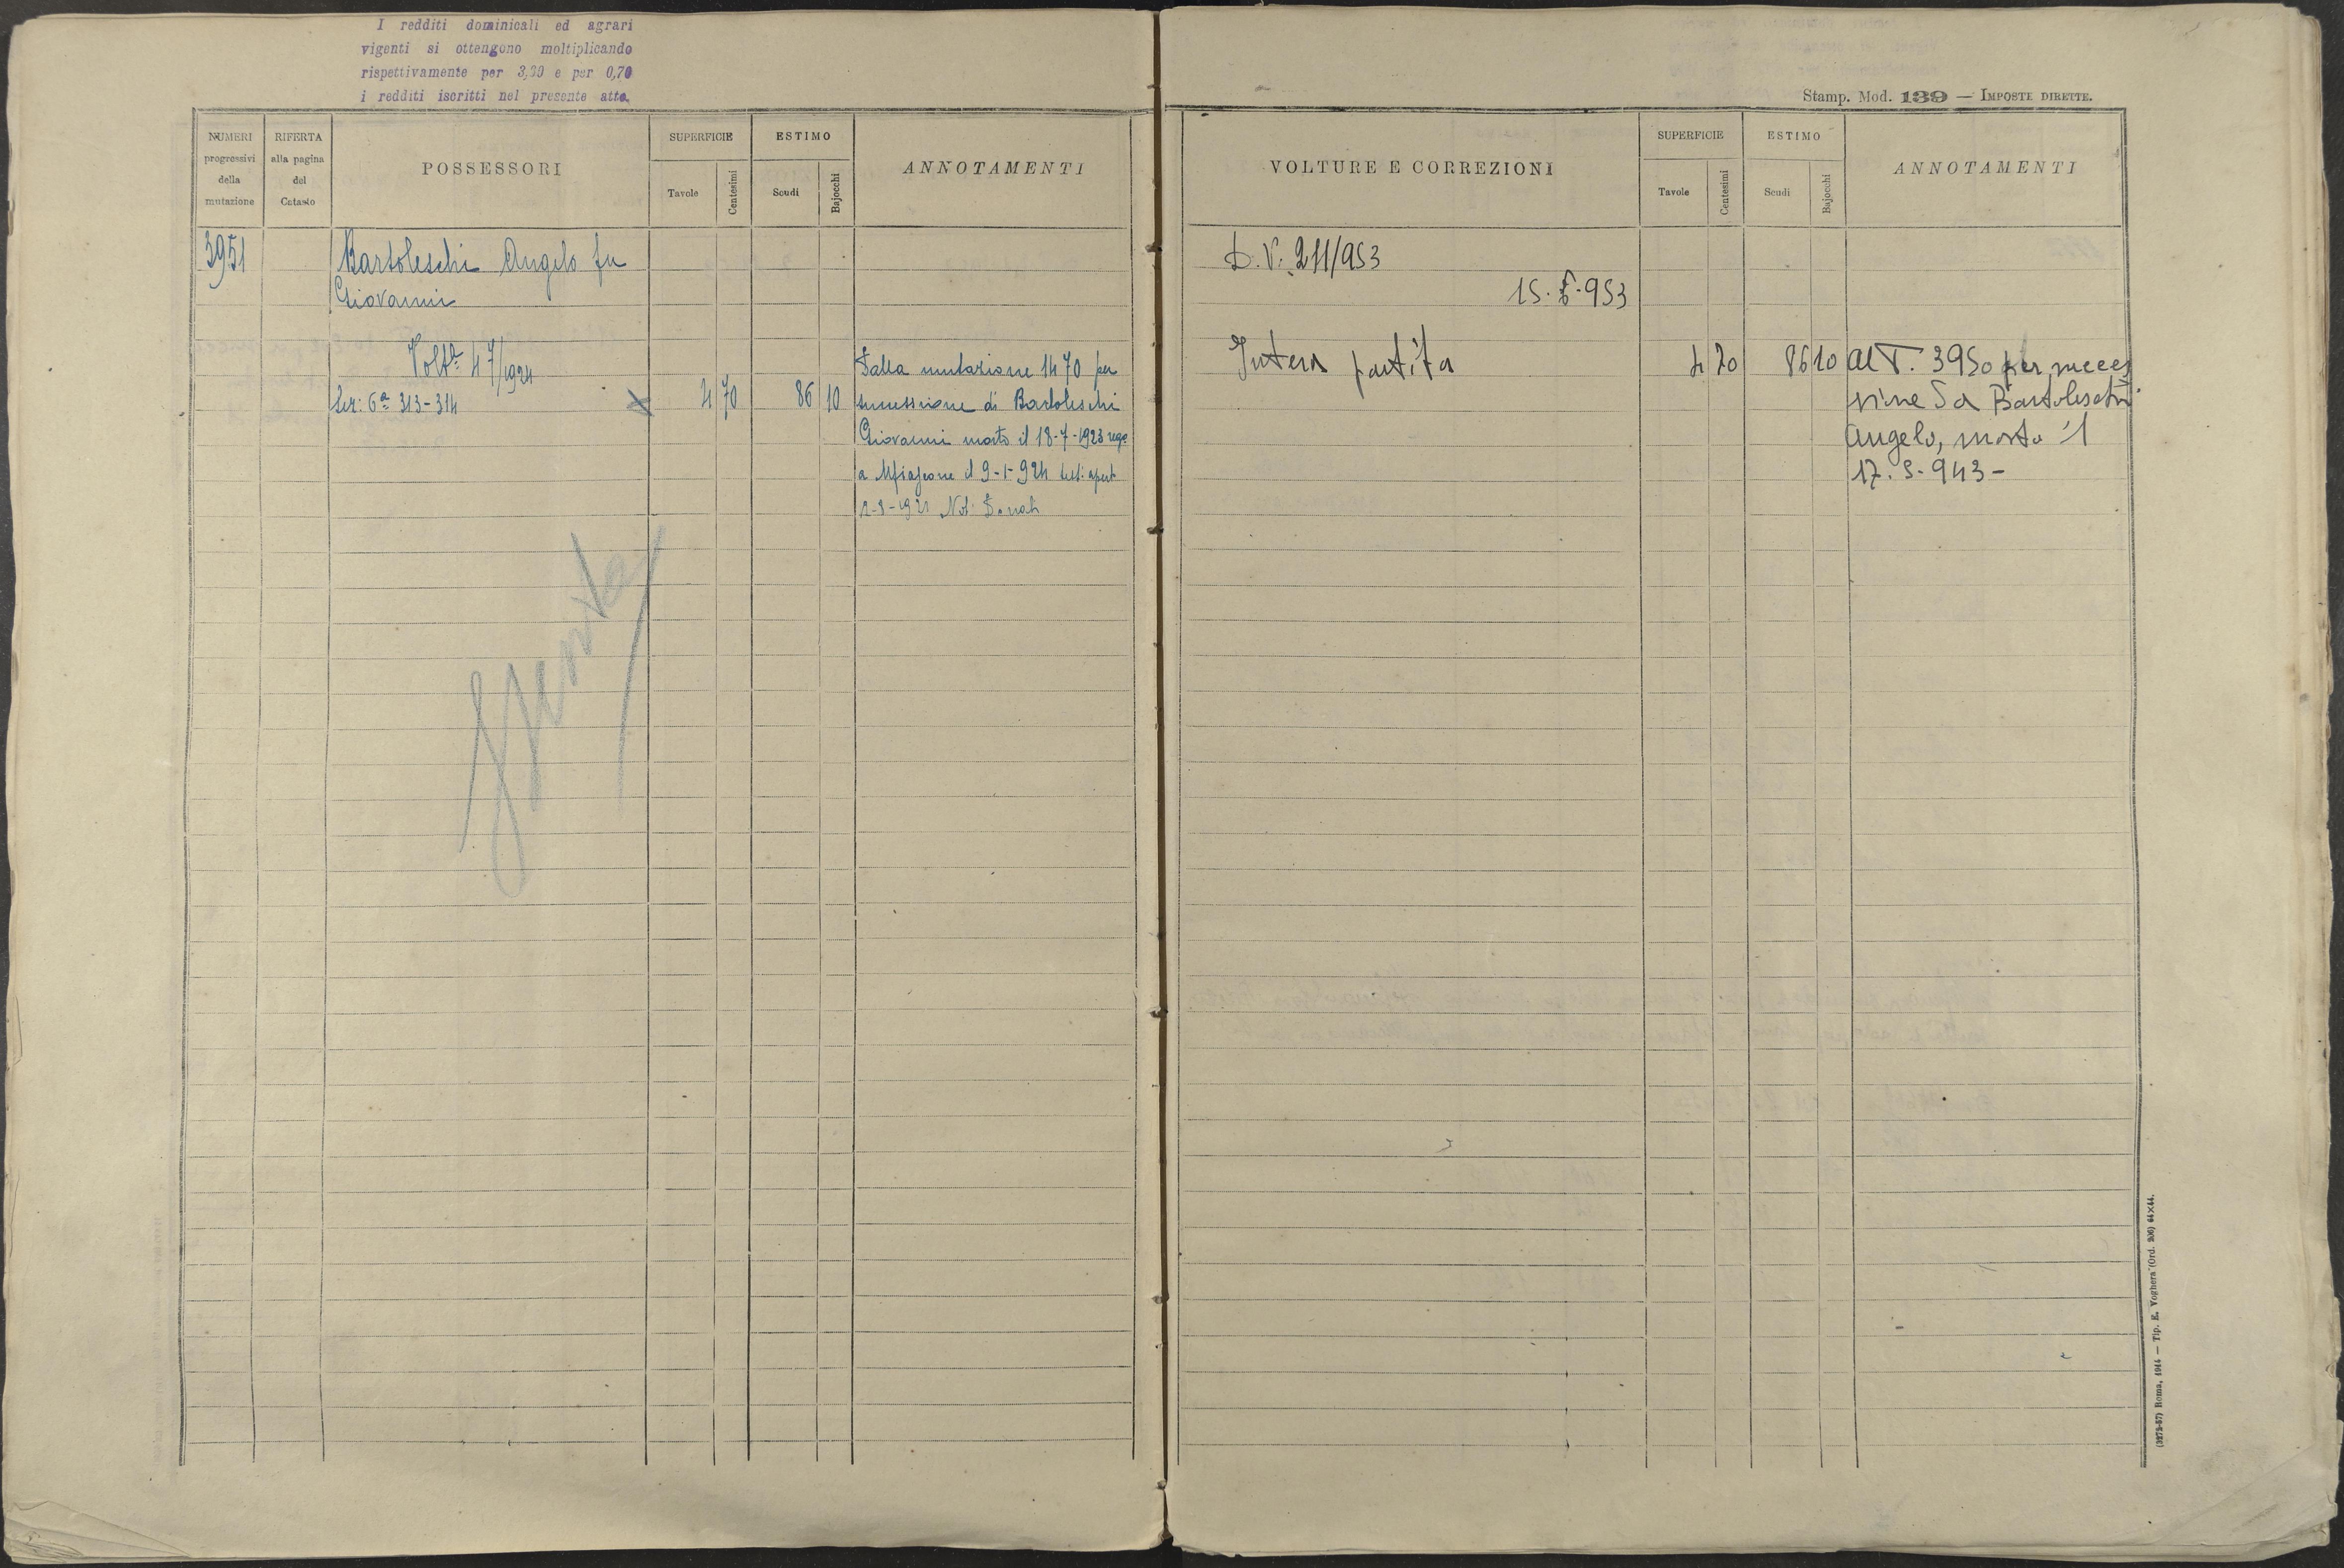 I redditi dominicali ed agrari
vigenti si ottengono moltiplicando
rispettivamente per 3,30 e per 0,70
i redditi iscritti nel presente atto.
NUMERI
progressivi
della
mutazione
RIFERTA
alla pagina
del
Catasto
POSSESSORI
SUPERFICIE
Tavole
Centesimi
ESTIMO
Scudi
Bajocchi
ANNOTAMENTI
3951
Bartoleschi Angelo fu
Giovanni
Volt.a 47/1924
Sez: 6a 313-314
4 70
86 10
Dalla mutazione 1470 per
successione di Bartoleschi
Giovanni morto il 18-7-1923
a il 9-1-924
Not: Donati
Stamp. Mod. 139 — IMPOSTE DIRETTE.
VOLTURE E CORREZIONI
SUPERFICIE
Tavole
Centesimi
ESTIMO
Scudi
Bajocchi
ANNOTAMENTI
D.V. 211/953
15. 953
Intera partita
4 70
86 10
Al T. 3950 per succes
sione da Bartoleschi
Angelo, morto il
17. 943-
(3273-57) Roma, 1944 — Tip. E. Voghera (Ord. 206) 64×44.